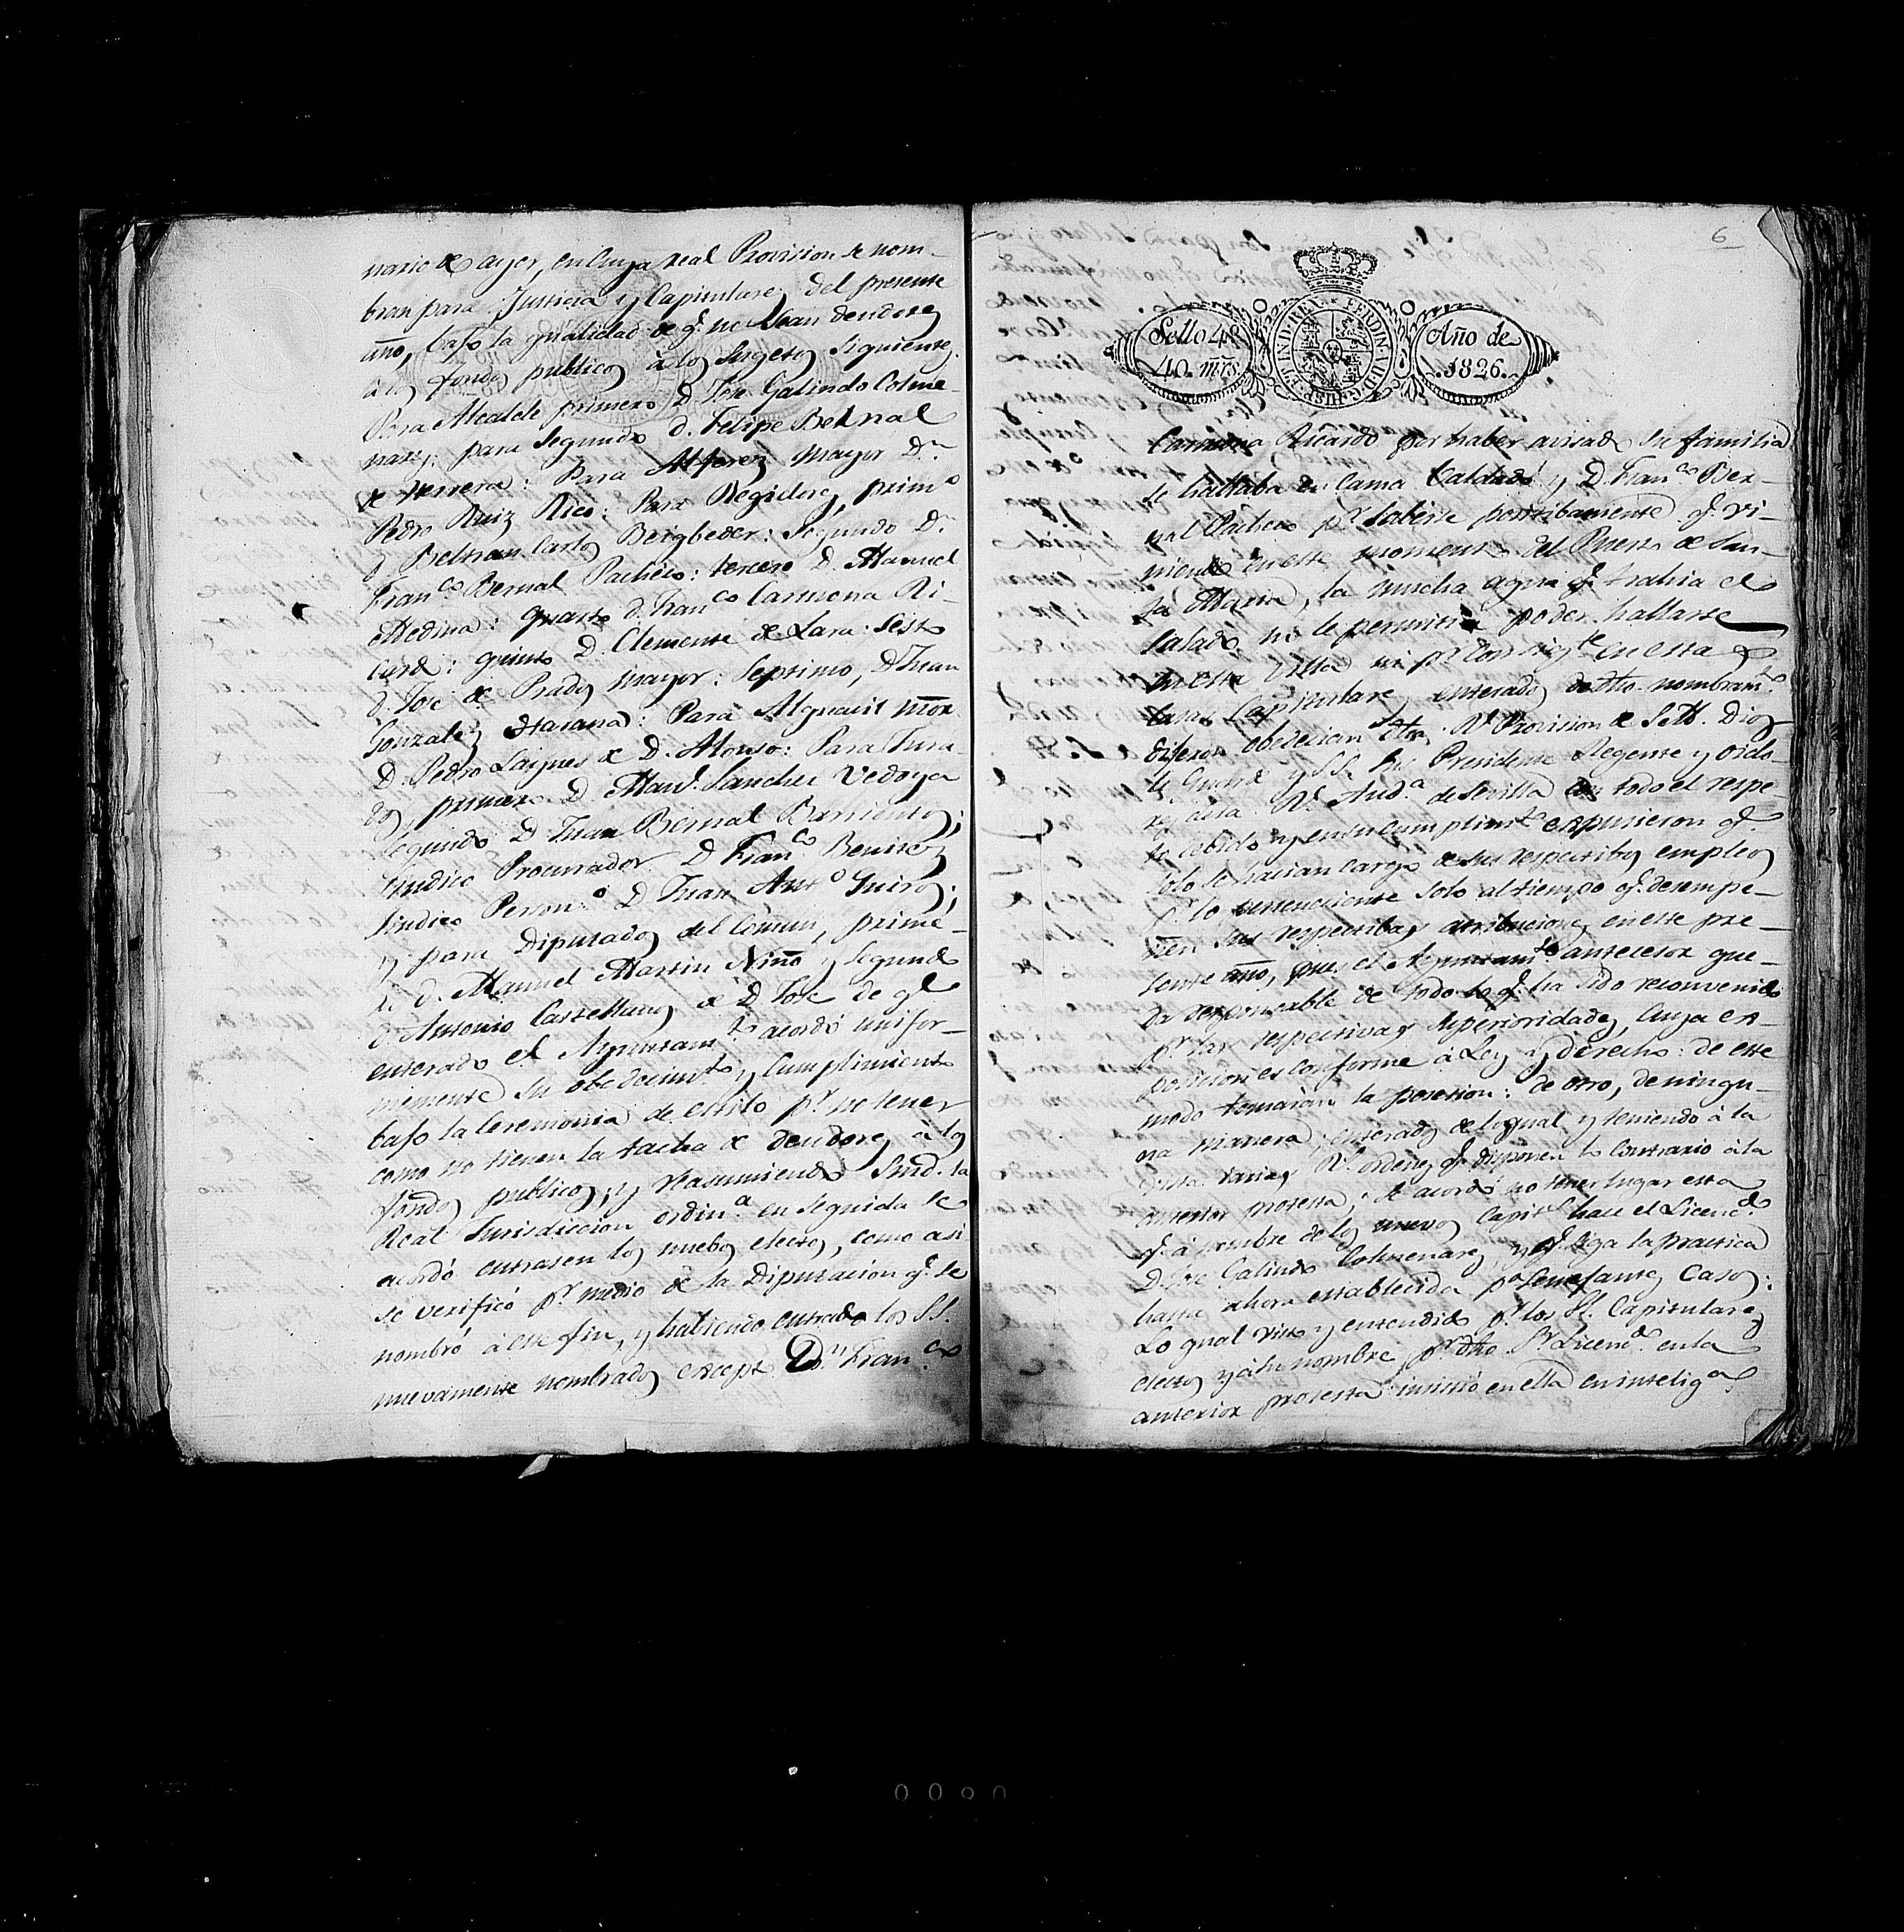 nario de ayer, en Cuya real Provision se nom-
bran para Justicia y Capitulares del presente
año, bajo la qualidad de q.e no sean deudores
à los fondos publicos à los Sugetos Siguientes.
Para Alcalde primero D. Jose Galindo Colme-
nares: para Segundo d. Felipe Bernal
de Herrera: Para Alferez Mayor D.n
Pedro Ruiz Rico: Para Regidores, prim.o
d. Beltran Carlos Beigbeder: Segundo D.n
Fran.co Bernal Pacheco: tercero D. Manuel
Medina: quarto d. Fran.co Carmona Ri-
cardo: quinto D. Clemente de Lara: Sesto
d. Jose de Prados mayor: Septimo, D. Juan
Gonzalez Harana: Para Alguacil mor
D. Pedro Laynes de D. Alonso: Para Jura-
dos, primero D. Man.l Sanchez Vedoya
Segundo D Juan Bernal Barrientos;
Sindico Procurador D Fran.co Benitez
Sindico Person.o D Juan Ant.o Quiros;
y para Diputados del Comun, prime-
ro d. Manuel Martin Niño y Segundo
d. Antonio Castellanos de D Jose de q.e
enterado el Ayuntam.to acordó unifor-
memente su obedecim.to y Cumplimiento
bajo la Ceremonia de estilo p.r no tener
como no tienen la tacha de deudores à los
fondos publicos; y reasumiendo Smd. la
Real Jurisdiccion ordin.a en Seguida se
acordó entrasen los nuebos electos, como asi
se verificó p.r medio de la Diputacion q.e se
nombró à este fin, y habiendo entrado los SS.
nuevamente nombrados except. D.n Fran.co
6
Sello 4º
40. mrs.
HISP. ET IND. REX
FERDIN. VII. D. G.
Año de
1826.
Carmona Ricardo por haber avisado su familia
se hallaba en Cama Baldado y D. Fran.co Ber-
nal Pacheco p.r Saberse positibamente q.e vi-
niendo en este momento del Puerto de San-
ta Maria, la mucha agua q.e trahia el
Salado, no le permitirá poder hallarse
en esta Villa ni p.r consig.te en esta
Casas Capitulares, enterados de dho. nombram.to
dijeron obedecian dha. R.l Provision de S.M. Dios
le Guarde y SS. sus Presidente Regente y Oido-
res de la R.l Aud.a de Sevilla con todo el respe-
to debido y en su Cumplim.to expusieron q.e
solo se hacian Cargo de sus respectibos empleos
p.r lo perteneciente solo al tiempo q.e desempe-
ñen sus respectibas atribuciones en este pre-
sente año, pues el Ayuntam.to antecesor que-
da responsable de todo lo q.e ha sido reconvenido
p.r las respectivas Superioridades, Cuya es-
posicion es Conforme à Ley y derecho: de este
modo tomarán la posesion: de otro, de ningu-
na manera; enterados de lo qual, y teniendo à la
vista varias R.s ordenes q.e disponen lo Contrario à la
anterior protesta; se acordó no tener lugar esta
q.e à nombre de los nuevos Capit.s hace el Licenc.do
D Jose Galindo Colmenares, y q.e siga la practica
hasta ahora establecida p.a Semejantes Casos:
Lo qual visto y entendido p.r los SS. Capitulares
electos y à su nombre p.r dho. S.r Licenc.do en la
anterior protesta insistió en ella en inteligª